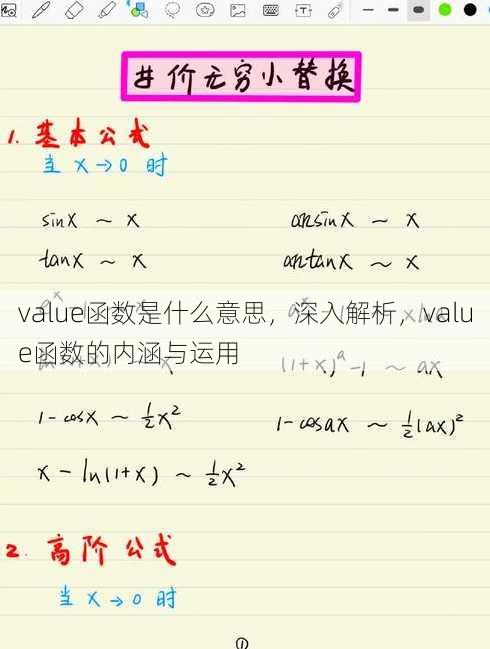 等价无穷小替换
1. 基本公式
当 x→0 时
sinx ~ x    arcsinx ~ x
tanx ~ x    arctanx ~ x
value函数是什么意思，深入解析，valu
e函数的内涵与运用
(1+x)ᵃ-1 ~ ax
1-cosx ~ ½x²    1-cosax ~ ½(ax)²
x-ln(1+x) ~ ½x²
2. 高阶公式
当 x→0 时
①